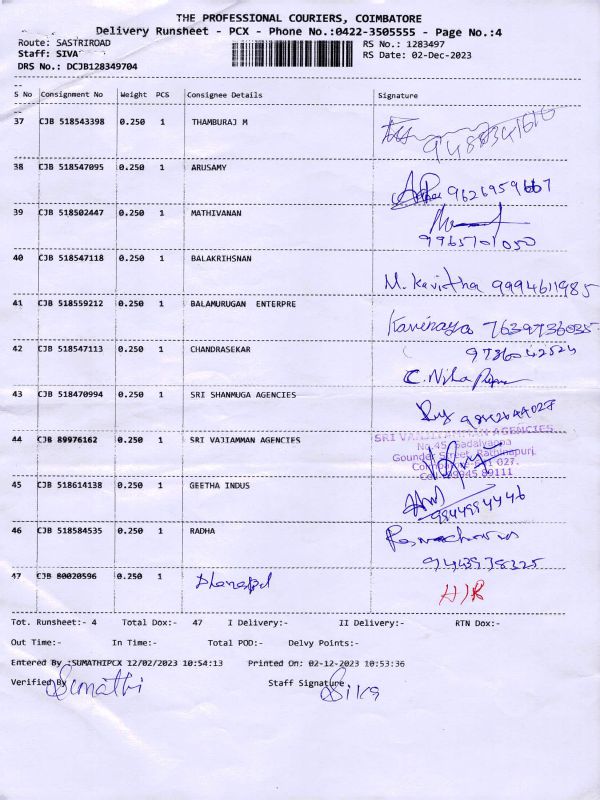 THE PROFESSIONAL COURIERS, COIMBATORE
Delivery Runsheet - PCX - Phone No.:0422-3505555 - Page No.:4
Route: SASTRIROAD RS No.: 1283497
Staff: SIVA RS Date: 02-Dec-2023
DRS No.: DCJB128349704
S No Consignment No Weight PCS Consignee Details Signature
37 CJB 518543398 0.250 1 THAMBURAJ M
38 CJB 518547095 0.250 1 ARUSAMY 9626959667
39 CJB 518502447 0.250 1 MATHIVANAN
9965701050
40 CJB 518547118 0.250 1 BALAKRIHSNAN
M. Kavitha 9994611985
41 CJB 518559212 0.250 1 BALAMURUGAN ENTERPRE
7639736035
42 CJB 518547113 0.250 1 CHANDRASEKAR
C. Nitha
43 CJB 518470994 0.250 1 SRI SHANMUGA AGENCIES
44 CJB 89976162 0.250 1 SRI VAJIAMMAN AGENCIES
No.45,
Gounder Street, Rathinapuri,
45 CJB 518614138 0.250 1 GEETHA INDUS
9944994446
46 CJB 518584535 0.250 1 RADHA
47 CJB 80020596 0.250 1 Dhanapal
Tot. Runsheet:- 4 Total Dox:- 47 I Delivery:- II Delivery:- RTN Dox:-
Out Time:- In Time:- Total POD:- Delvy Points:-
Entered By :SUMATHIPCX 12/02/2023 10:54:13 Printed On: 02-12-2023 10:53:36
Verified By Sumathi Staff Signature Siva